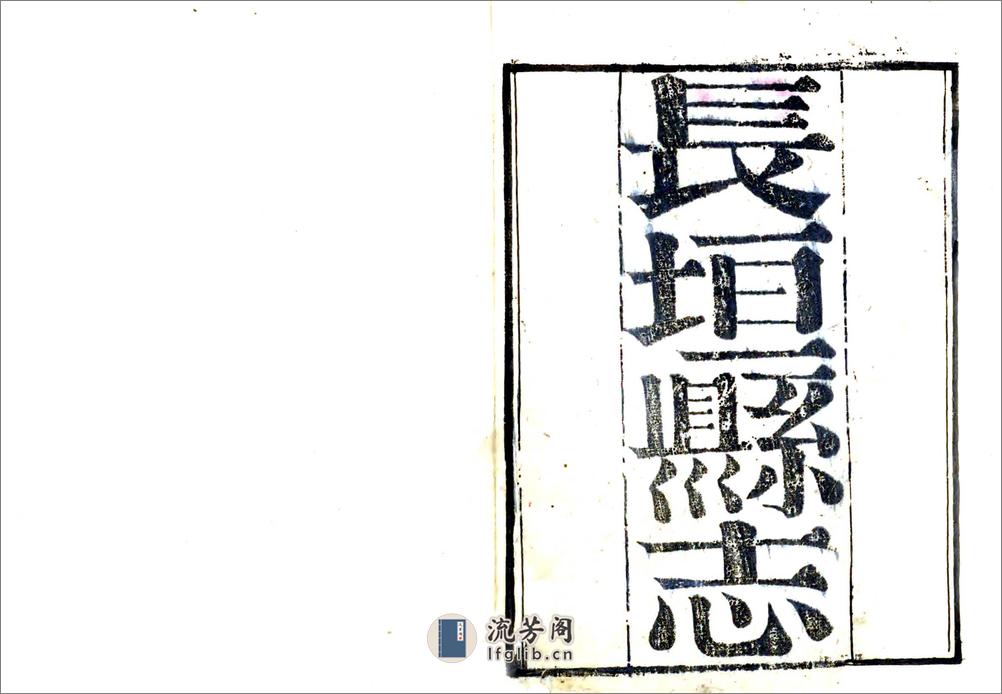 長垣縣志
流芳阁
lfglib.cn